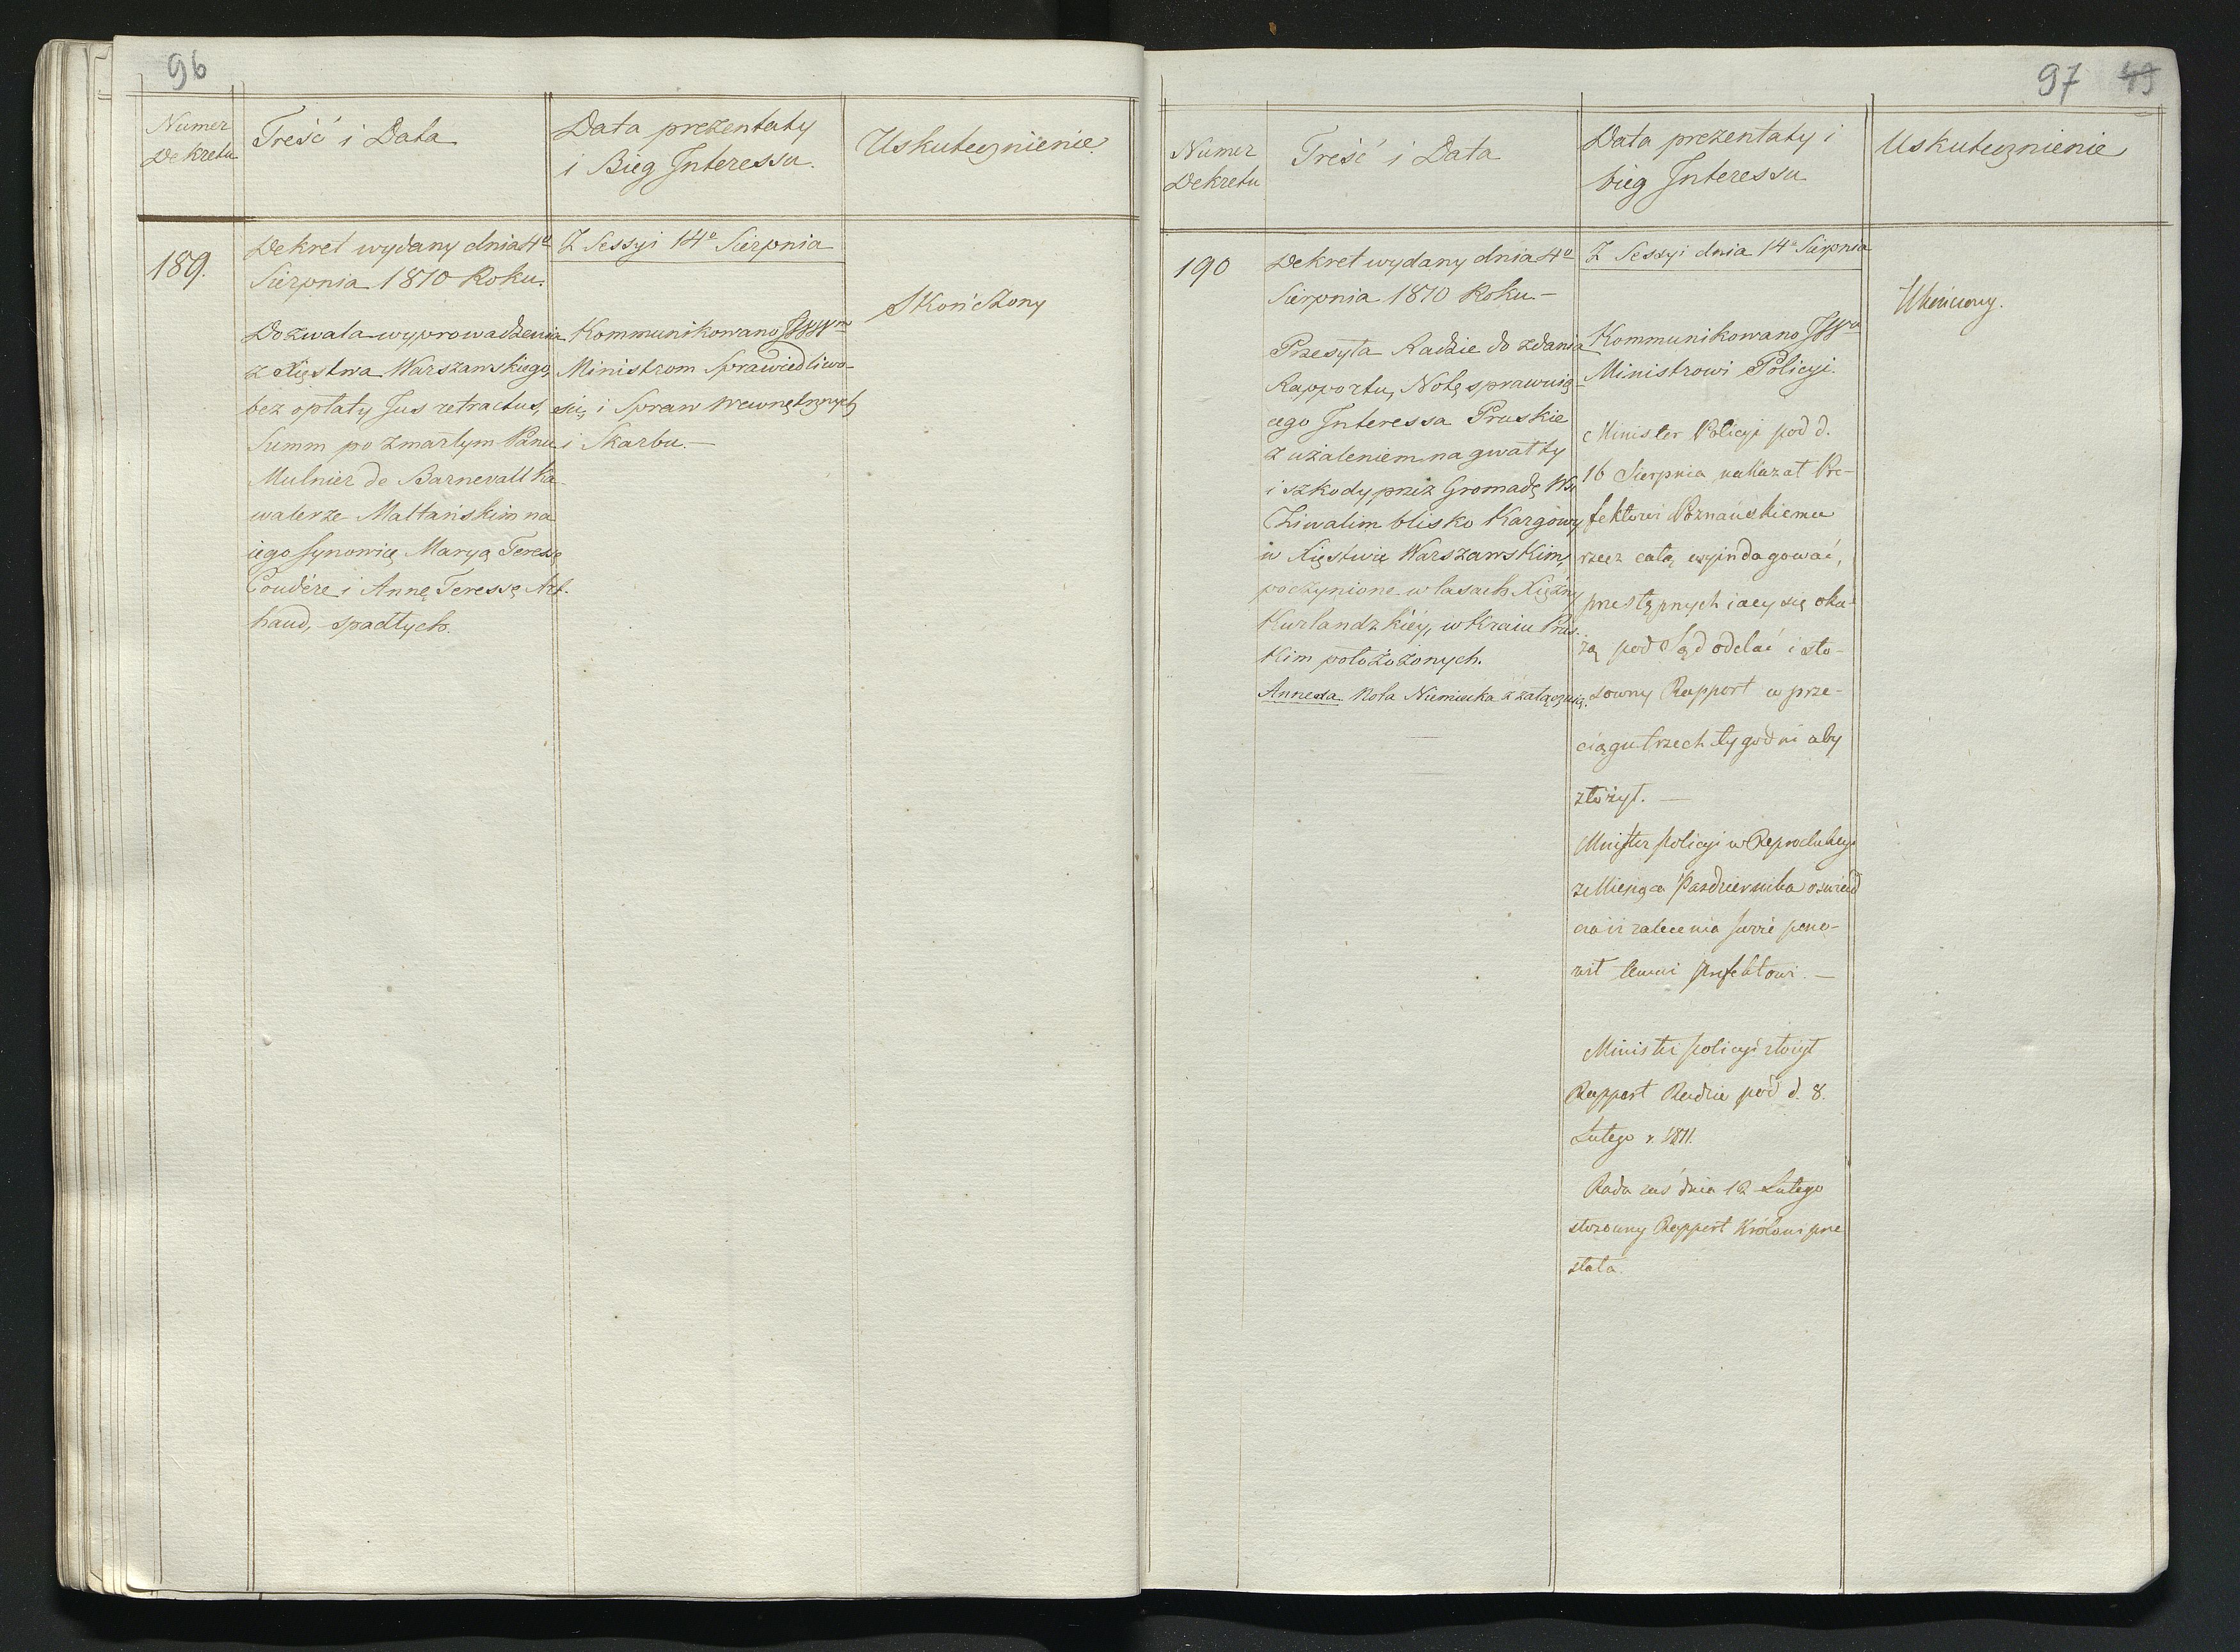 96
Numer
Dekretu
Treść i Data
Data prezentaty
i Bieg Interessu.
Uskutecznienie.
189.
Dekret wydany dnia 4º
Sierpnia 1810 Roku.
Dozwala wyprowadzenia
z Xięstwa Warszawskiego,
bez opłaty Jus retractus,
Summ po zmarłym Panu
Mulnier de Barnevall Ka-
walerze Maltańskim na
iego synowicę Maryą Teressę
Coudére i Annę Teressę Art-
haud, spadłych.
Z Sessyi 14º Sierpnia
Kommunikowano JJWWm
Ministrom Sprawiedliwo-
sci, i Spraw Wewnętrznych
i Skarbu.—
Skończony
97 49
Numer
Dekretu
Treść i Data
Data prezentaty i
bieg Interessu
Uskutecznienie
190
Dekret wydany dnia 4º
Sierpnia 1810 Roku.—
Przesyła Radzie do zdania
Rapportu, Notę sprawuią-
cego Interessa Pruskie
z użaleniem na gwałty
i szkody przez Gromadę Wsi
Chwalim blisko Kargowy
w Xięstwie Warszawskim,
poczynione w lasach Xiężny
Kurlandzkiéy, w Kraiu Prus-
kim położożonych.
Annexa Nota Niemiecka z załącznią.
Z Sessyi dnia 14º Sierpnia
Kommunikowano JJWu
Ministrowi Policyi.
Minister Policyi pod d.
16 Sierpnia nakazał Pre-
fektowi Poznańskiemu
rzecz całą wyindagować,
przestępnych iacy się oka-
żą pod Sąd oddać i sto-
sowny Rapport w prze-
ciągu trzech tygodni aby
złożył.—
Minister policyi w Reprodukcyi
z Miesiąca Pazdziernika oświad
cza iż zalecenia swoie pono-
wił temu prefektowi.—
Minister policyi złożył
Rapport Radzie pod d. 8.
Lutego r. 1811.
Rada zaś dnia 12 Lutego
stosowny Rapport Królowi prze
słała.
Ukończony.